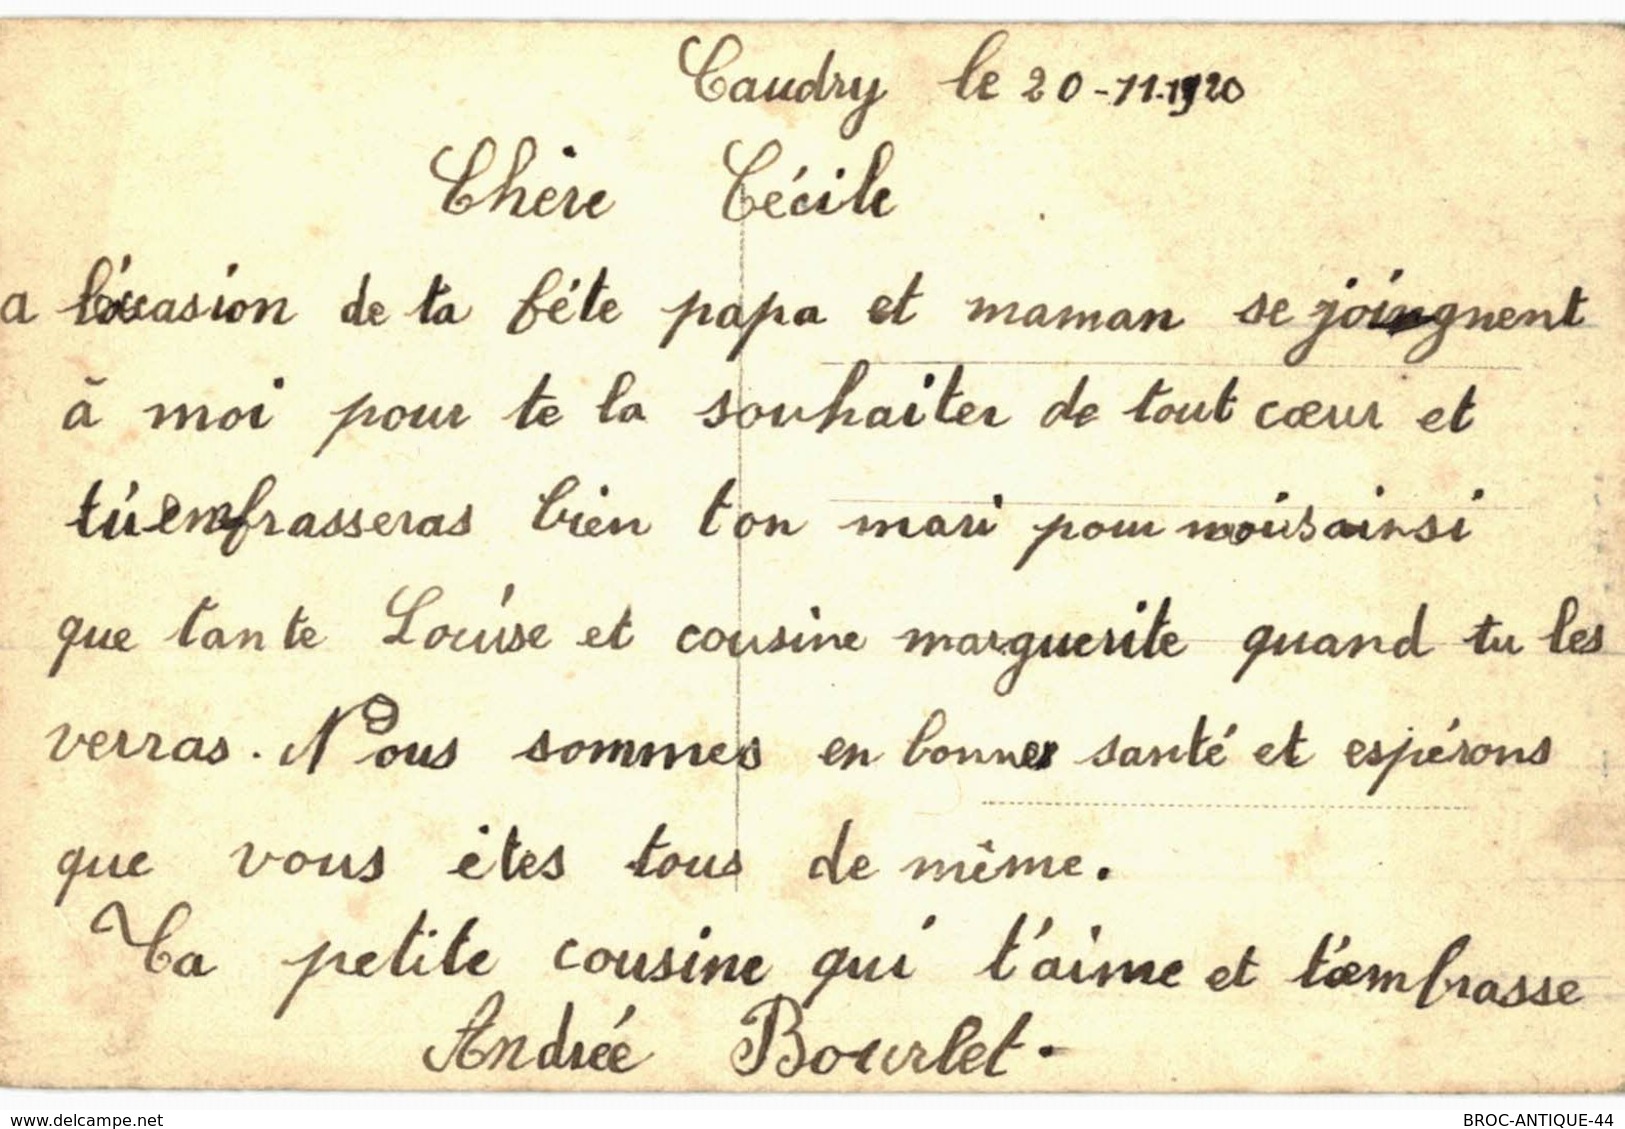 Caudry le 20-11-1920
Chère Cécile
a l'occasion de ta féte papa et maman se joingnent
à moi pour te la souhaiter de tout cœur et
tu embrasseras bien ton mari pour nous ainsi
que tante Louise et cousine marguerite quand tu les
verras. Nous sommes en bonnes santé et espérons
que vous êtes tous de même.
Ta petite cousine qui t'aime et t'embrasse
Andrée Bourlet.
www.delcampe.net
BROC-ANTIQUE-44